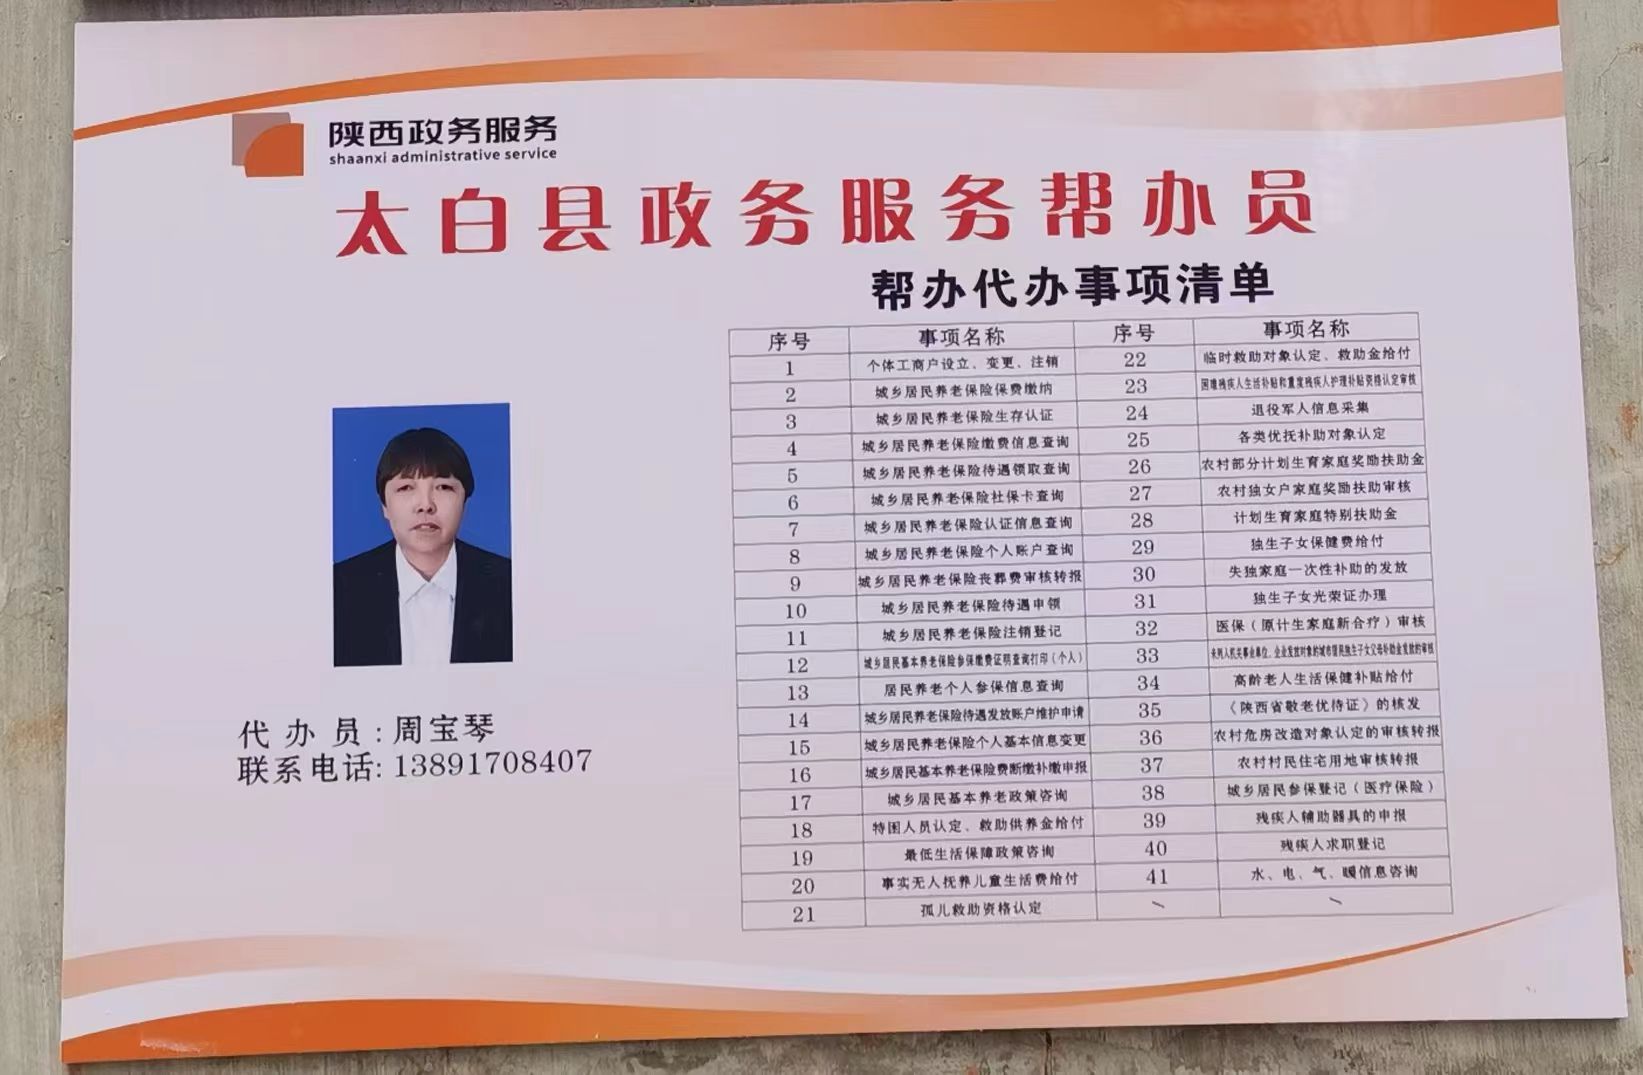 陕西政务服务
shaanxi administrative service
太白县政务服务帮办员
帮办代办事项清单
序号 事项名称 序号 事项名称
1 个体工商户设立、变更、注销 22 临时救助对象认定、救助金给付
2 城乡居民养老保险保费缴纳 23 困难残疾人生活补贴和重度残疾人护理补贴资格认定审核
3 城乡居民养老保险生存认证 24 退役军人信息采集
4 城乡居民养老保险缴费信息查询 25 各类优抚补助对象认定
5 城乡居民养老保险待遇领取查询 26 农村部分计划生育家庭奖励扶助金
6 城乡居民养老保险社保卡查询 27 农村独女户家庭奖励扶助审核
7 城乡居民养老保险认证信息查询 28 计划生育家庭特别扶助金
8 城乡居民养老保险个人账户查询 29 独生子女保健费给付
9 城乡居民养老保险丧葬费审核转报 30 失独家庭一次性补助的发放
10 城乡居民养老保险待遇申领 31 独生子女光荣证办理
11 城乡居民养老保险注销登记 32 医保（原计生家庭新合疗）审核
12 城乡居民基本养老保险参保缴费证明查询打印（个人） 33 未列入机关事业单位、企业发放对象的城市居民独生子女父母补助金发放的审核
13 居民养老个人参保信息查询 34 高龄老人生活保健补贴给付
14 城乡居民养老保险待遇发放账户维护申请 35 《陕西省敬老优待证》的核发
15 城乡居民养老保险个人基本信息变更 36 农村危房改造对象认定的审核转报
16 城乡居民基本养老保险费断缴补缴申报 37 农村村民住宅用地审核转报
17 城乡居民基本养老政策咨询 38 城乡居民参保登记（医疗保险）
18 特困人员认定、救助供养金给付 39 残疾人辅助器具的申报
19 最低生活保障政策咨询 40 残疾人求职登记
20 事实无人抚养儿童生活费给付 41 水、电、气、暖信息咨询
21 孤儿救助资格认定 \ \
代办员:周宝琴
联系电话:13891708407